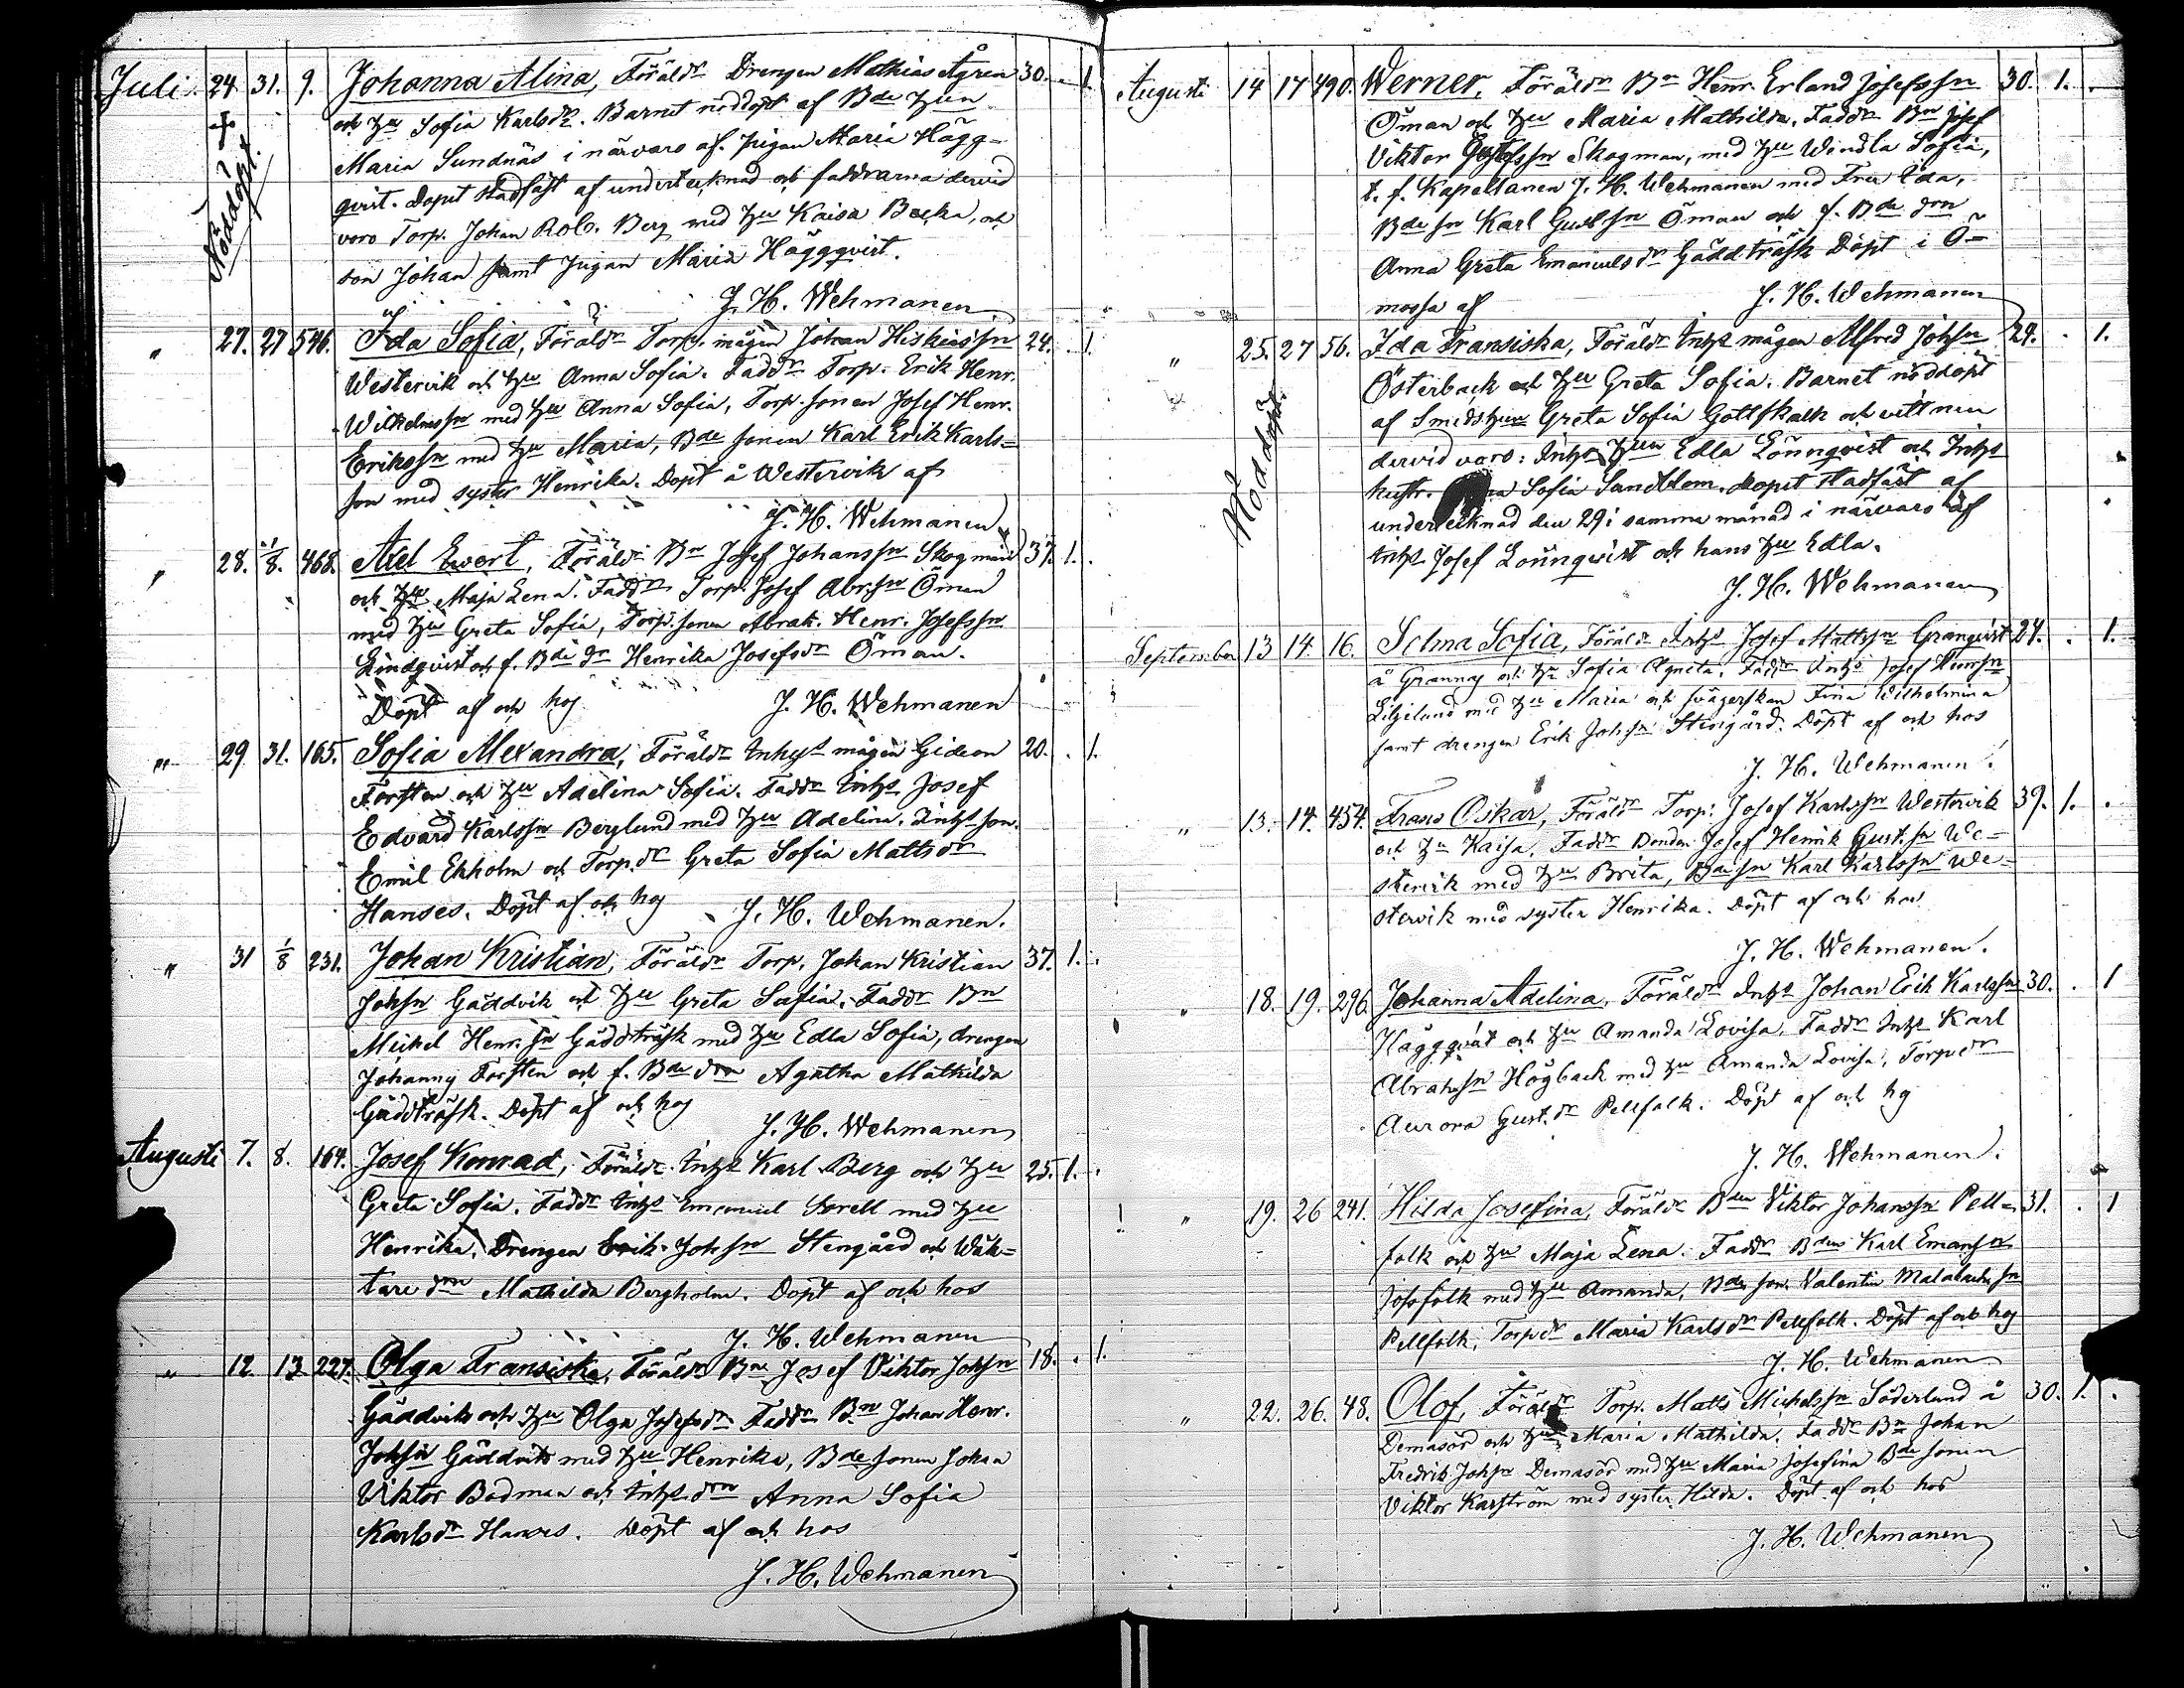 Juli 24 31. 9. Johanna Alina, Föräldr Drengen Mathias Ågren 30. . 1.
Nöddöpt.
och hu Sofia Karlsdr. Barnet nöddöpt af Bde hun
Maria Sundnäs i närvaro af Pigan Maria Hägg=
qvist. Dopet stadfäst af undertecknad och faddrarna dervid
voro Torp. Johan Rob. Berg med hu Kaisa Backa, och
son Johan samt Pigan Maria Häggqvist.
J. H. Wehmanen
" 27. 27 546. Ida Sofia, Föräldr Torp. mågen Johan Hiskiassn 24. . 1.
Westervik och hu Anna Sofia. Faddr Torp. Erik Henr.
Wilhelmssn med hu Anna Sofia, Torp. sonen Josef Henr.
Erikssn med hu Maria, Bde sonen Karl Erik Karls=
son med syster Henrika. Döpt å Westervik af
J. H. Wehmanen
" 28. 1/8. 468. Axel Ewert, Föräldr Bn Josef Johanssn Skogman 37. 1. .
och hu Maja Lena. Faddr Torp. Josef Abr.sn Öman
med hu Greta Sofia, Torp. sonen Abrah. Henr. Josefssn
Lindqvist och f. Bde dr Henrika Josefsdr Öman.
Döpt af och hos J. H. Wehmanen
" 29 31. 165. Sofia Alexandra, Föräldr Inhyst mågen Gideon 20. . 1.
Forsten och hu Adelina Sofia. Faddr Inhs Josef
Edvard Karlssn Berglund med hu Adelina. Inhs son.
Emil Ekholm och Torp. dr Greta Sofia Mattsdr
Hanses. Döpt af och hos J. H. Wehmanen.
" 31 1/8 231. Johan Kristian, Föräldr Torp. Johan Kristian 37. 1. .
Johsn Gäddvik och hu Greta Sofia. Faddr Bn
Mickel Henr.sn Gäddträsk med hu Edla Sofia, drengen
Johannes Forsten och f. Bde drn Agatha Mathilda
Gäddträsk. Döpt af och hos
J. H. Wehmanen
Augusti 7. 8. 164. Josef Konrad, Föräldr Inhs Karl Berg och hu 25. 1. .
Greta Sofia. Faddr Inhs Emanuel Sorell med hu
Henrika, Drengen Erik Johsn Stengård och Wäk=
tare drn Mathilda Bergholm. Döpt af och hos
J. H. Wehmanen
" 12. 13 227. Olga Fransiska, Föräldr Bn Josef Viktor Johsn 18. . 1.
Gäddvik och hu Olga Josefsdr Faddr Bn Johan Henr.
Johsn Gäddvik med hu Henrika, Bde sonen Johan
Viktor Bodman och Inhs drn Anna Sofia
Karlsdr Hanses. Döpt af och hos
J. H. Wehmanen
Augusti 14 17 490. Werner, Föräldr Bn Henr. Erland Josefssn 30. 1. .
Öman och hu Maria Mathilda. Faddr Bn Josef
Viktor Gustafssn Skogman, med hu Wendla Sofia,
t. f. Kapellanen J. H. Wehmanen med Fru Ida,
Bde sn Karl Gustsn Öman och f. Bde drn
Anna Greta Emanuelsdr Gäddträsk Döpt i Ö=
mossa af J. H. Wehmanen
" 25. 27 56. Ida Fransiska, Föräldr Inhs mågen Alfred Johsn 24. . 1.
Nöddöpt.
Österback och hu Greta Sofia. Barnet nöddöpt
af Smedshun Greta Sofia Gottskalk och vittnen
dervid voro: Inhs hun Edla Lönnqvist och Inhs
hustr. Sofia Sandblom. Dopet stadfäst af
undertecknad den 29 i samma månad i närvaro af
Inhs Josef Lönnqvist och hans hu Edla.
J. H. Wehmanen
September 13 14. 16. Selma Sofia, Föräldr Inhs Josef Mattssn Granqvist 24. . 1.
å Grannas och hu Sofia Agneta. Faddr Inhs Josef Henrsn
Liljelund med hu Maria och svägerskan Fina Wilhelmina
samt drengen Erik Johsn Stengård. Döpt af och hos
J. H. Wehmanen.
" 13. 14. 454. Frans Oskar, Föräldr Torp. Josef Karlssn Westervik 39. 1. .
och hu Kaisa. Faddr Bonden Josef Henrik Gust.sn We=
stervik med hu Brita, Bde sn Karl Karlssn We=
stervik med syster Henrika. Döpt af och hos
J. H. Wehmanen.
" 18. 19. 296. Johanna Adelina, Föräldr Inhs Johan Erik Karlssn 30. . 1
Häggqvist och hu Amanda Lovisa. Faddr Inhs Karl
Abrahsn Högback med hu Amanda Lovisa, Torpedr
Aurora Gust.dr Pellfalk. Döpt af och hos
J. H. Wehmanen.
" 19. 26 241. Hilda Josefina, Föräldr Bden Viktor Johanssn Pell= 31. . 1
folk och hu Maja Lena. Faddr Bden Karl Emansn
Josfolk med hu Amanda, Bde son. Valentin
Pellfolk, Torpdr Maria Karlsdr Pellfolk. Döpt af och hos
J. H. Wehmanen
" 22. 26. 48. Olof, Föräldr Torp. Matts Mickelssn Söderlund å 30. 1. .
Demasör och hu Maria Mathilda. Faddr Bn Johan
Fredrik Johsn Demasör med hu Maria Josefina Bde sonen
Viktor Karström med syster Hilda. Döpt af och hos
J. H. Wehmanen